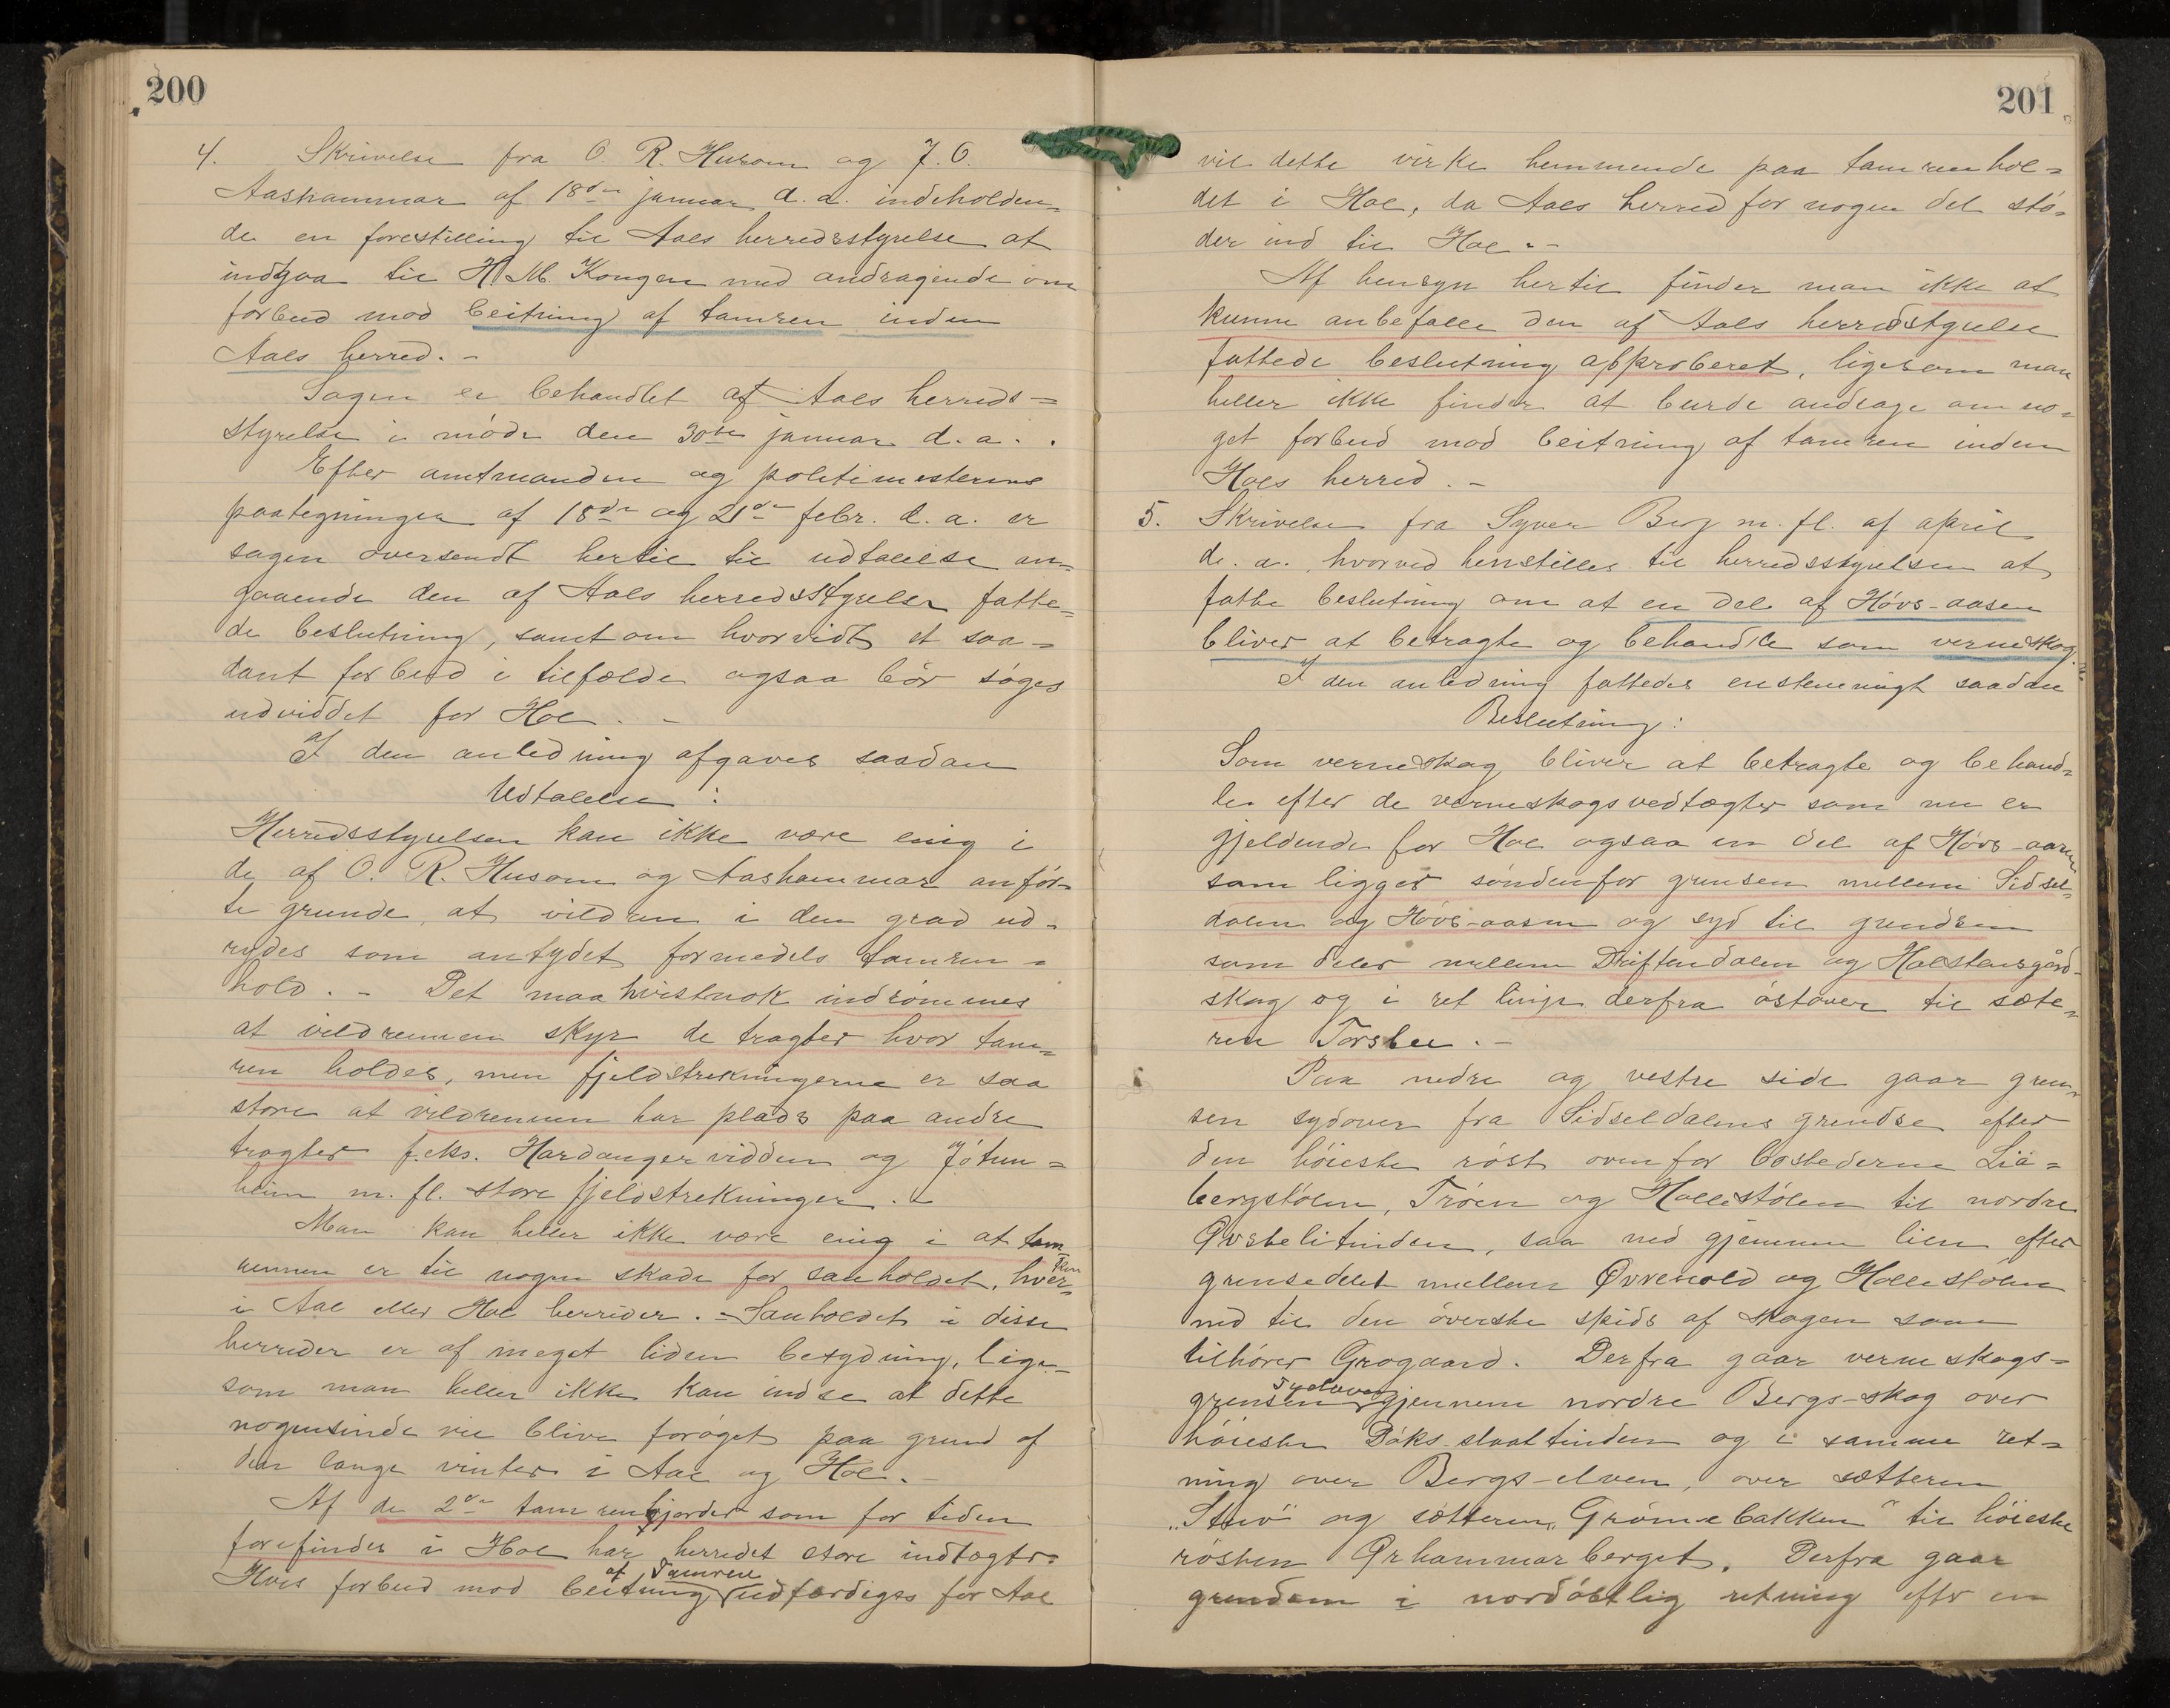 200
4. Skrivelse fra O. R. Husom og J. O.
Aashammar af 18de januar d. a. indeholden-
de en forestilling til Aals herredsstyrelse at
indgaa til H. M. Kongen med andragende om
forbud mod beitning af tamren inden
Aals herred. -
Sagen er behandlet af Aals herreds=
styrelse i møde den 30te januar d. a. .
Efter amtmanden og politimesterens
paategninger af 18de og 21de febr. d. a. er
sagen oversendt hertil til udtalelse an-
gaaende den af Aals herredsstyrelse fatte-
de beslutning, samt om hvorvidt et saa-
dant forbud i tilfælde ogsaa bör søges
udviddet for Hol. -
I den anledning afgaves saadan
Udtalelse :
Herredsstyrelsen kan ikke være enig i
de af O. R. Husom og Aashammar anför-
te grunde, at vildren i den grad ud-
rydes som antydet formedels tamren-
hold. - Det maa hvistnok indrömmes
at vildrennen skyr de tragter hvor tam-
ren holdes, men fjeldstrekningerne er saa
store at vildrennen har plads paa andre
tragter f.eks. Hardangervidden og Jótun=
heim m. fl. store fjeldstrekninger. -
Man kan heller ikke være enig i at tam-
rennen er til nogen skade for sauholdet, hver-
ken
i Aal eller Hol herreder. - Sauholdet i disse
herreder er af meget liden betydning, lige-
som man heller ikke kan indse at dette
nogensinde vil blive foröget paa grund af
den lange vinter i Aal og Hol. -
Af de 2de tamrenhjorder som for tiden
forefindes i Hol har herredet store indtægter.
af Tamren
Hvis forbud mod beitning udfærdiges for Aal
201
vil dette virke hemmende paa tamrenhol=
det i Hol, da Aals herred for nogen del stö-
der ind til Hol. -
Af hensyn hertil finder man ikke at
kunne anbefale den af Aals herredstyrelse
fattede beslutning approberet, ligesom man
heller ikke finder at burde andrage om no-
get forbud mod beitning af tamren inden
Hols herred. -
5. Skrivelse fra Syver Berg m. fl. af april
d. a., hvorved henstilles til herredsstyrelsen at
fatte beslutning om at en del af Hóvs-aasen
bliver at betragte og behandle som verneskog.
I den anledning fattedes enstemmigt saadan
Beslutning :
Som verneskog bliver at betragte og behand-
le efter de verneskogsvedtægter som nu er
gjeldende for Hol ogsaa en del af Hóvs-aasen
som ligger söndenfor grensen mellem Sidsel-
dalen og Hóvs-aasen og syd til grendsen
som deler mellem Driftendalen og Holstensgård-
skog og i ret linje derfra östover til sæte-
ren Torsbu. -
Paa nedre og vestre side gaar gren-
sen sydover fra Sidseldalens grendse efter
den höieste röst ovenfor bostederne Lia=
bergstölen, Tröen og Hallestölen til nordre
Qvsbelitinden, saa ned gjennem lien efter
grensedelet mellem Øvrevold og Hallestölen
ned til den överste spids af skogen som
tilhörer Grogaard. Derfra gaar verneskogs=
Sydover
grensen gjennem nordre Bergs-skog over
höieste Dóks-slaattinden og i samme ret=
ning over Bergs-elven, over sætteren
og sætteren „Grönnebakken" til höieste
rösten Ørhammarberget. Derfra gaar
grendsen i nordöstlig retning efter en